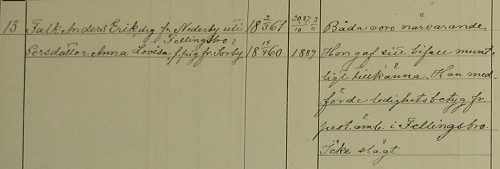 13 Falk Anders Erik drg fr. Nederby uti 18 2/3 61 20 27 3/10 4 Båda voro närvarande.
Fellingsbro
Persdotter Anna Lovisa f. pig fr. Sörby 18 14/4 60 1889 Hon gaf sitt bifall munt-
ligt tillkänna. Han med-
förde ledighetsbetyg fr.
past. emb. i Fellingsbro.
Icke slägt.